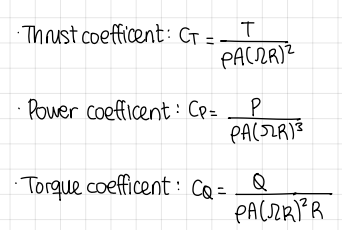 · Thrust coefficent: C_T = T / ρA(ΩR)²
· Power coefficent: C_P = P / ρA(ΩR)³
· Torque coefficent: C_Q = Q / ρA(ΩR)²R